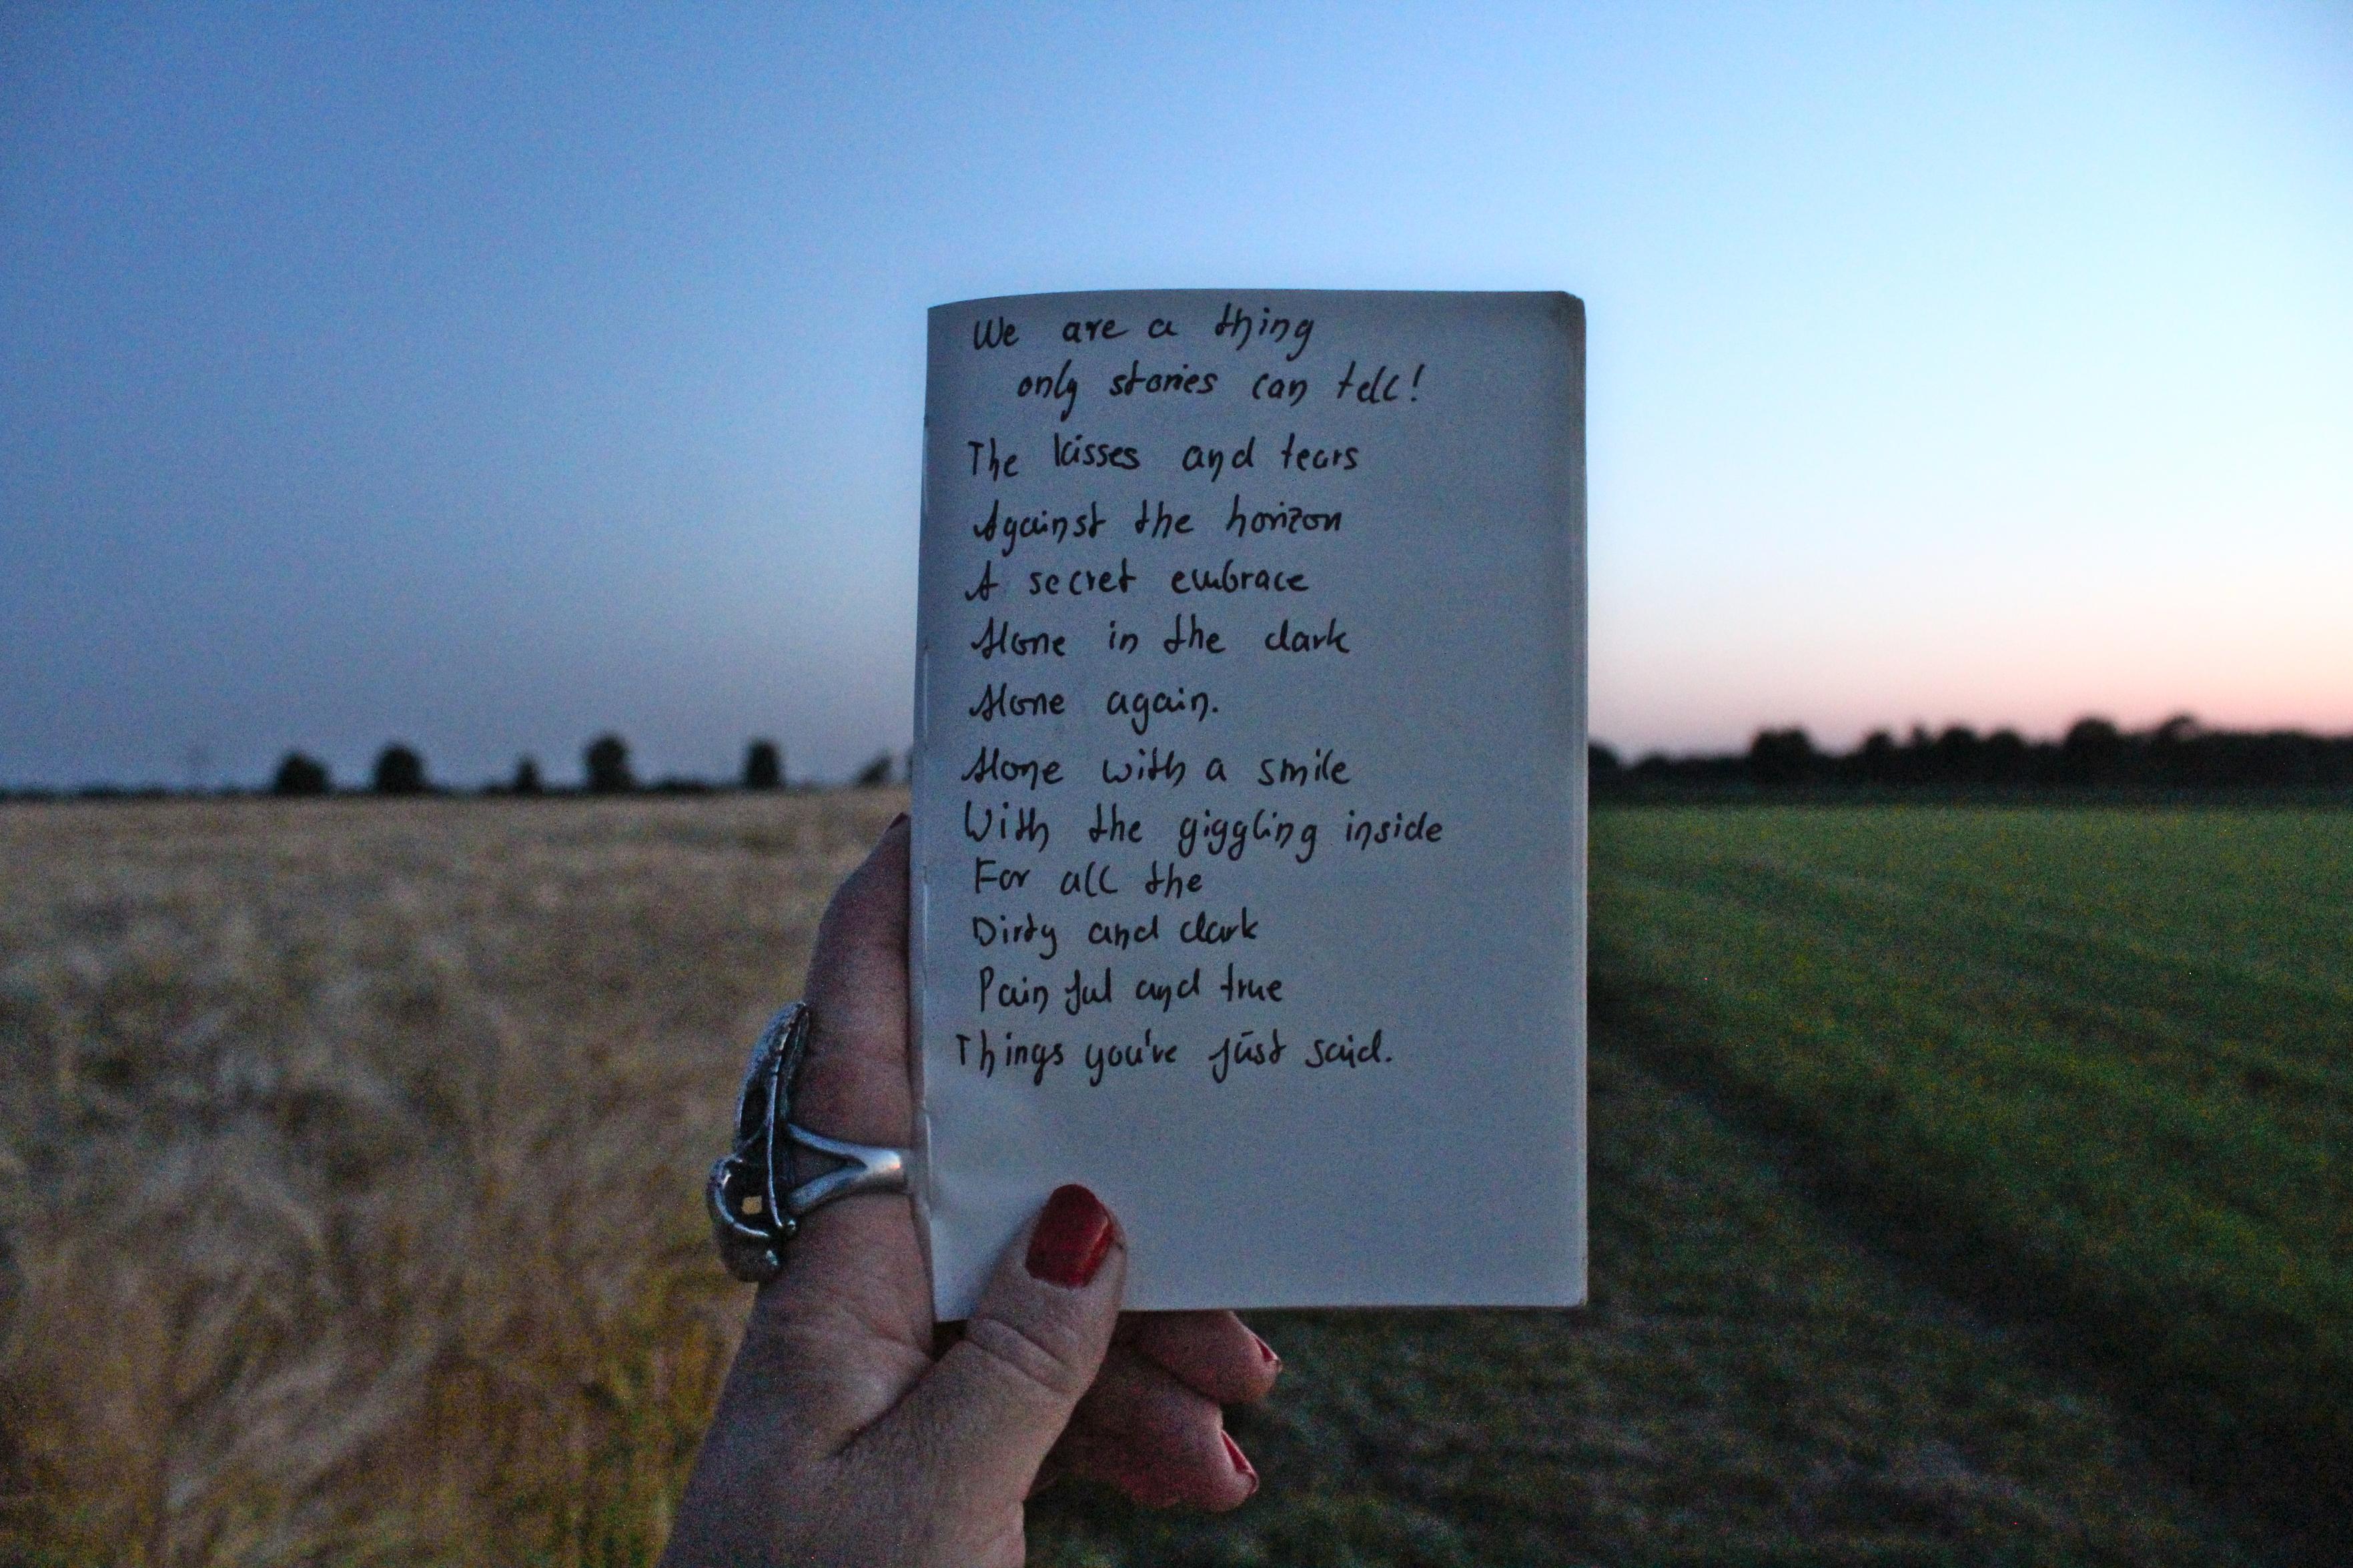 We are a thing
only stories can tell!
The kisses and tears
Against the horizon
A secret embrace
Alone in the dark
Alone again.
Alone with a smile
With the giggling inside
For all the
Dirty and dark
Painful and true
Things you've just said.